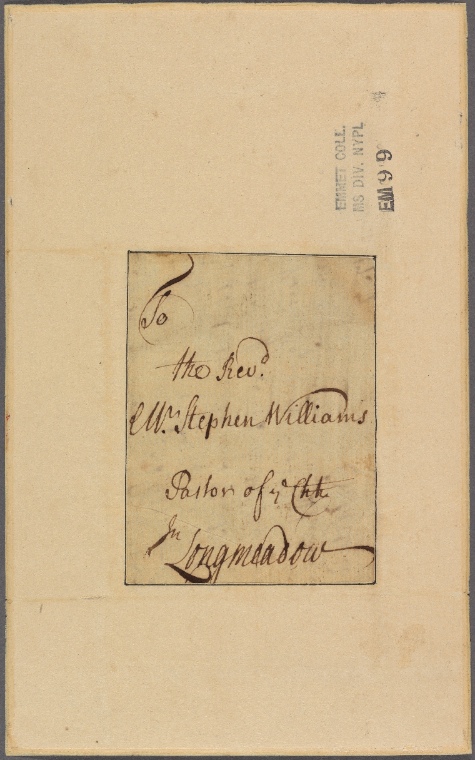 EMMET COLL.
MS DIV. NYPL
EM 99
To
the Revd.
Mr. Stephen Williams
Pastor of ye Chh
In Longmeadow